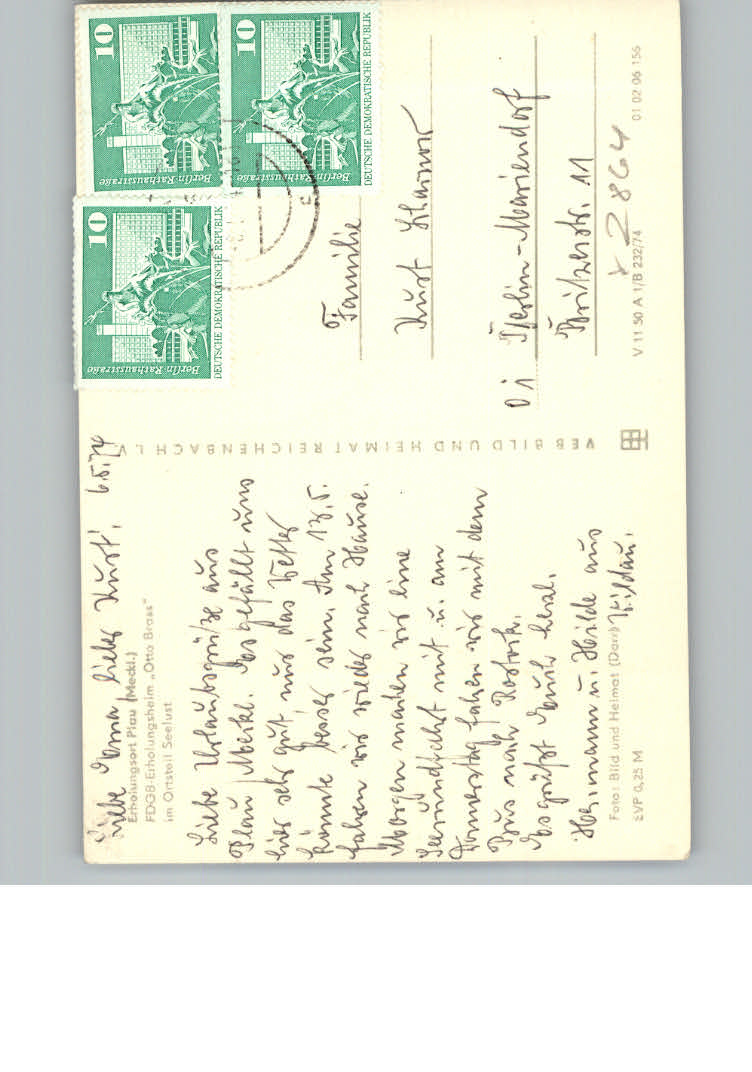 Liebe Erna, lieber Kurt! 6.5.74
Erholungsort Plau (Meckl.)
FDGB-Erholungsheim „Otto Brass“
im Ortsteil Seelust
Liebe Urlaubsgrüße aus
Plau Meckl. Es gefällt uns
hier sehr gut nur das Wetter
könnte besser sein. Am 13.5.
fahren wir wieder nach Hause.
Morgen machen wir eine
Seerundfahrt mit u. am
Donnerstag fahren wir mit dem
Bus nach Rostock.
Es grüßt Euch herzl.
Hermann u. Hilde aus
Wildau.
Foto: Bild und Heimat (Darr)
EVP 0,25 M
VEB BILD UND HEIMAT REICHENBACH I. V.
10
Berlin-Rathausstraße
DEUTSCHE DEMOKRATISCHE REPUBLIK
10
Berlin-Rathausstraße
DEUTSCHE DEMOKRATISCHE REPUBLIK
10
Berlin-Rathausstraße
DEUTSCHE DEMOKRATISCHE REPUBLIK
Familie
Kurt
Berlin-Mariendorf
Britzerstr. 11
2864
V 11 50 A 1/B 232/74 01 02 06 156